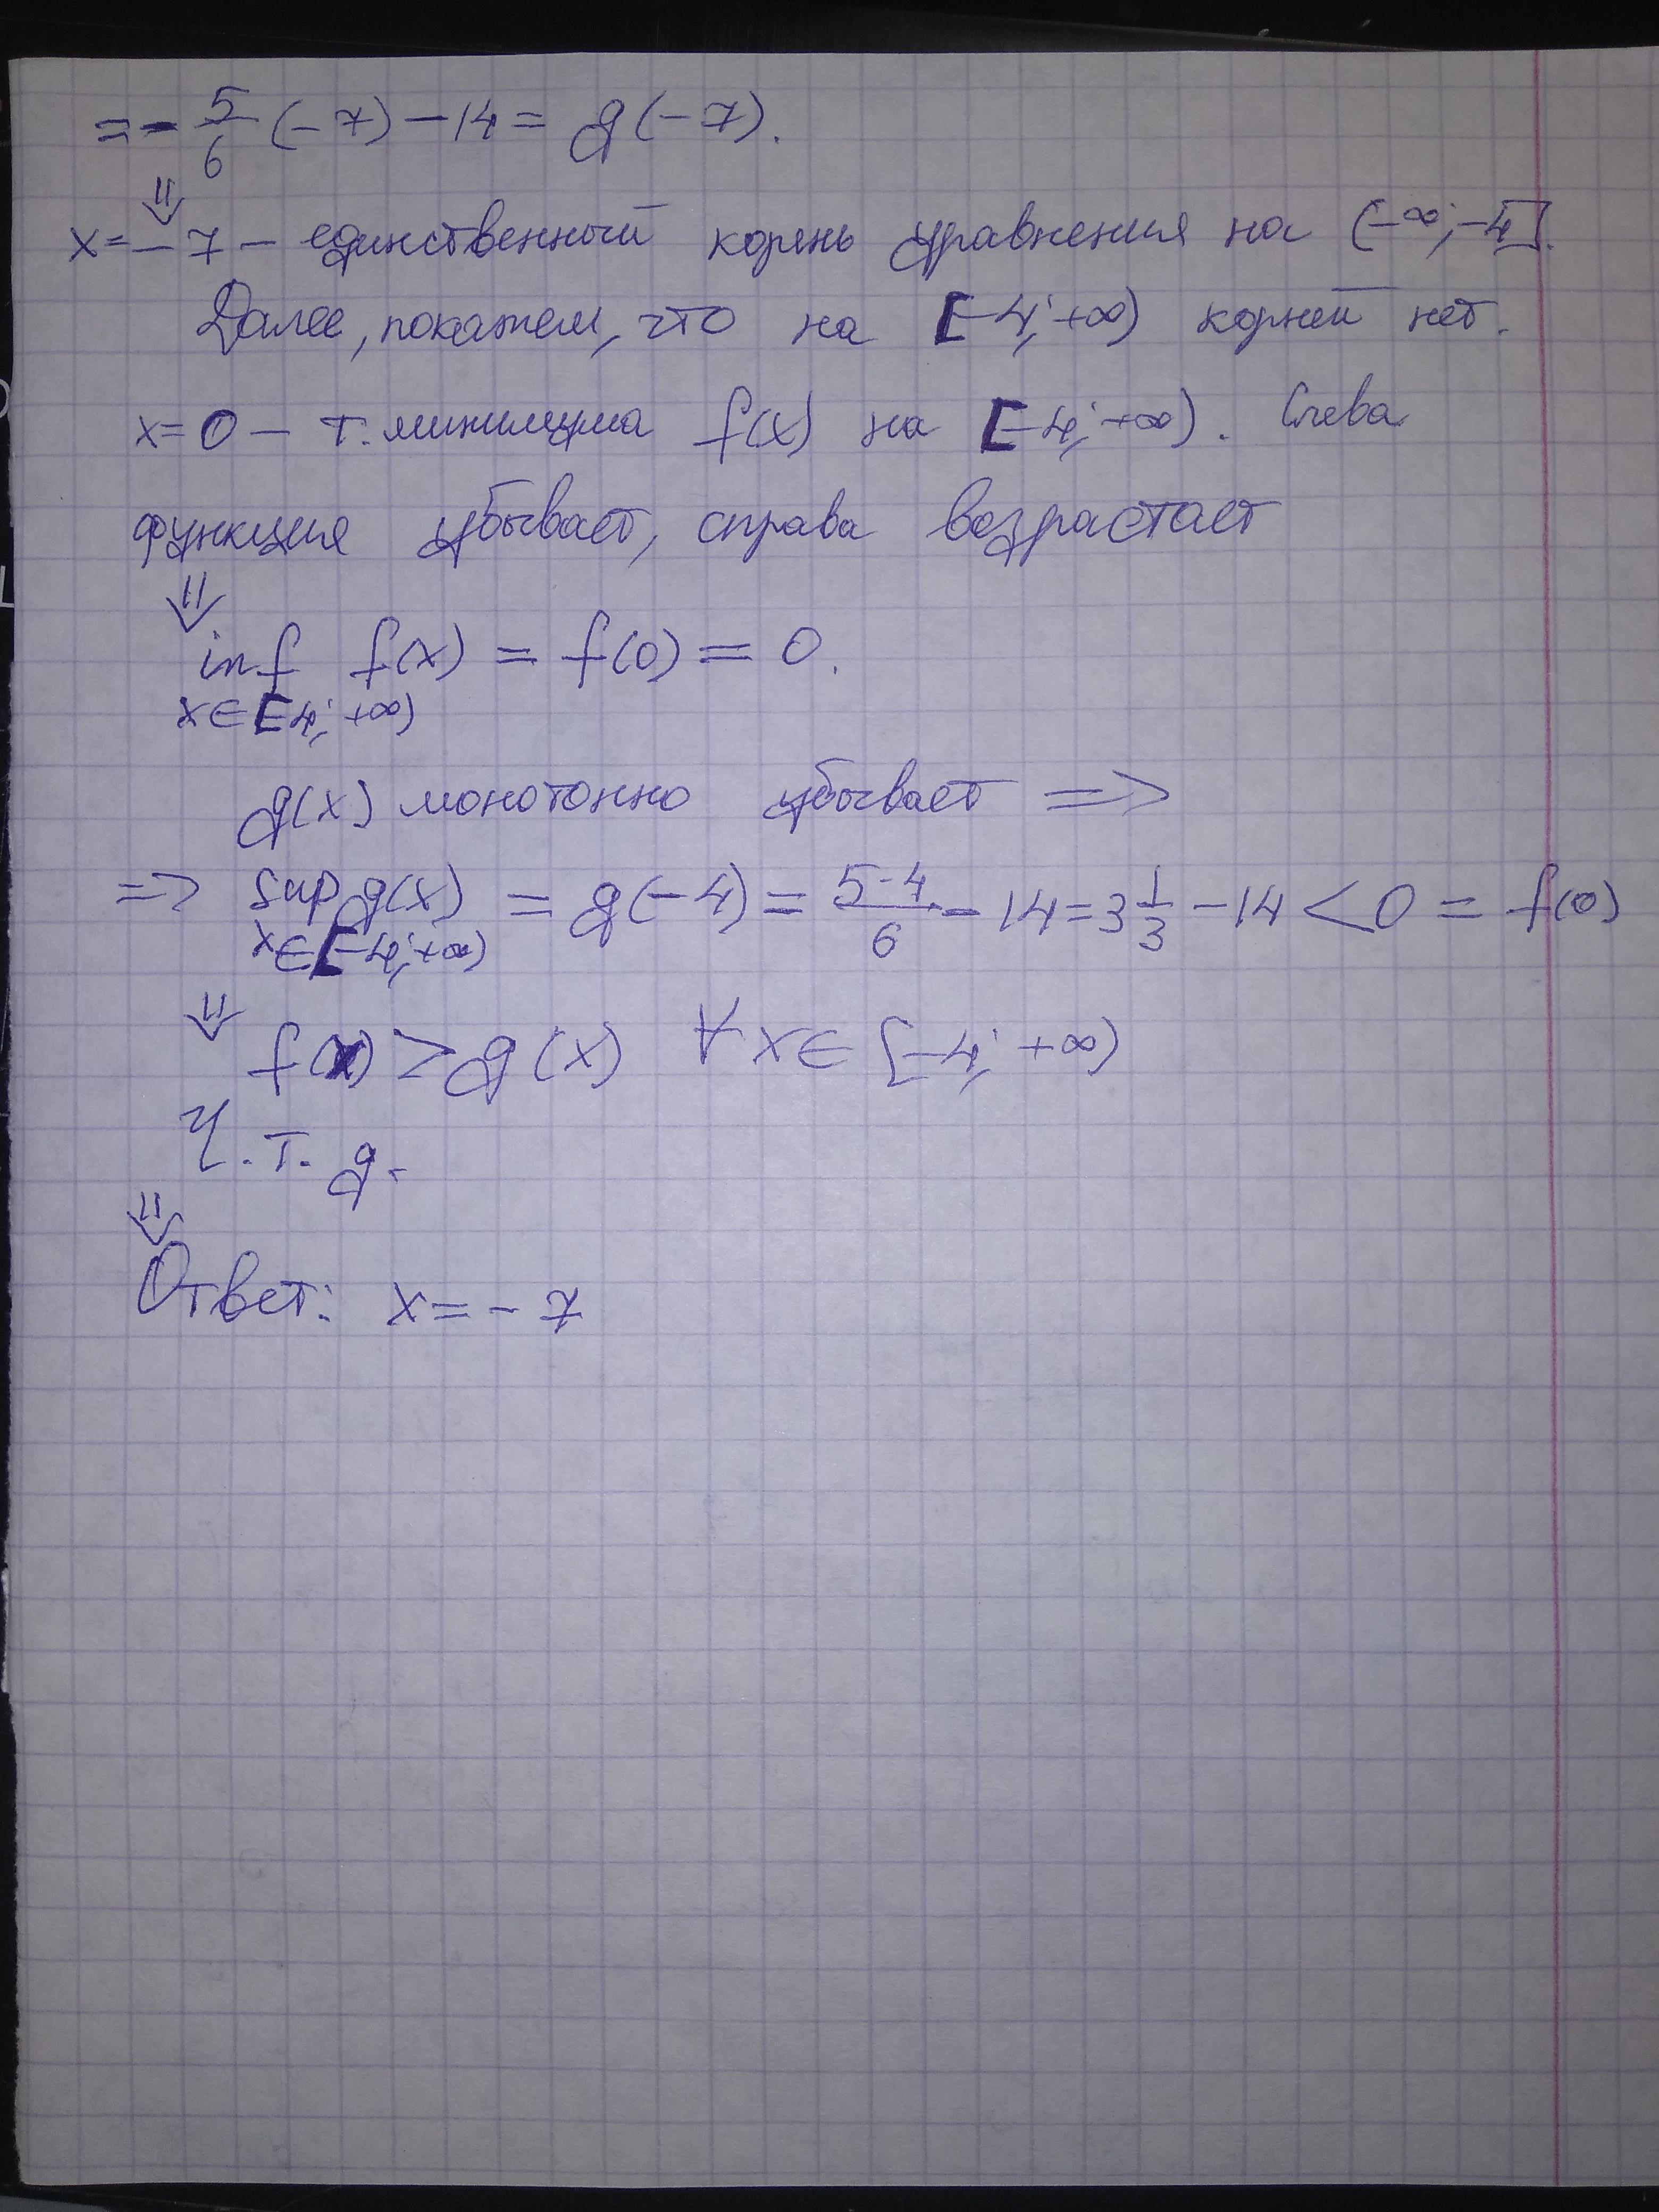 = - 5/6 (-7) - 14 = g(-7).
⇓
x = -7 - единственный корень уравнения на (-∞; -4].
Далее, покажем, что на [-4; +∞) корней нет.
x = 0 - т. минимума f(x) на [-4; +∞). Слева
функция убывает, справа возрастает
⇓
inf f(x) = f(0) = 0.
x∈[-4; +∞)
g(x) монотонно убывает =>
=> sup g(x) = g(-4) = 5·4/6 - 14 = 3 1/3 - 14 < 0 = f(0)
x∈[-4; +∞)
⇓
f(x) > g(x) ∀ x ∈ [-4; +∞)
Ч.т.д.
⇓
Ответ: x = -7